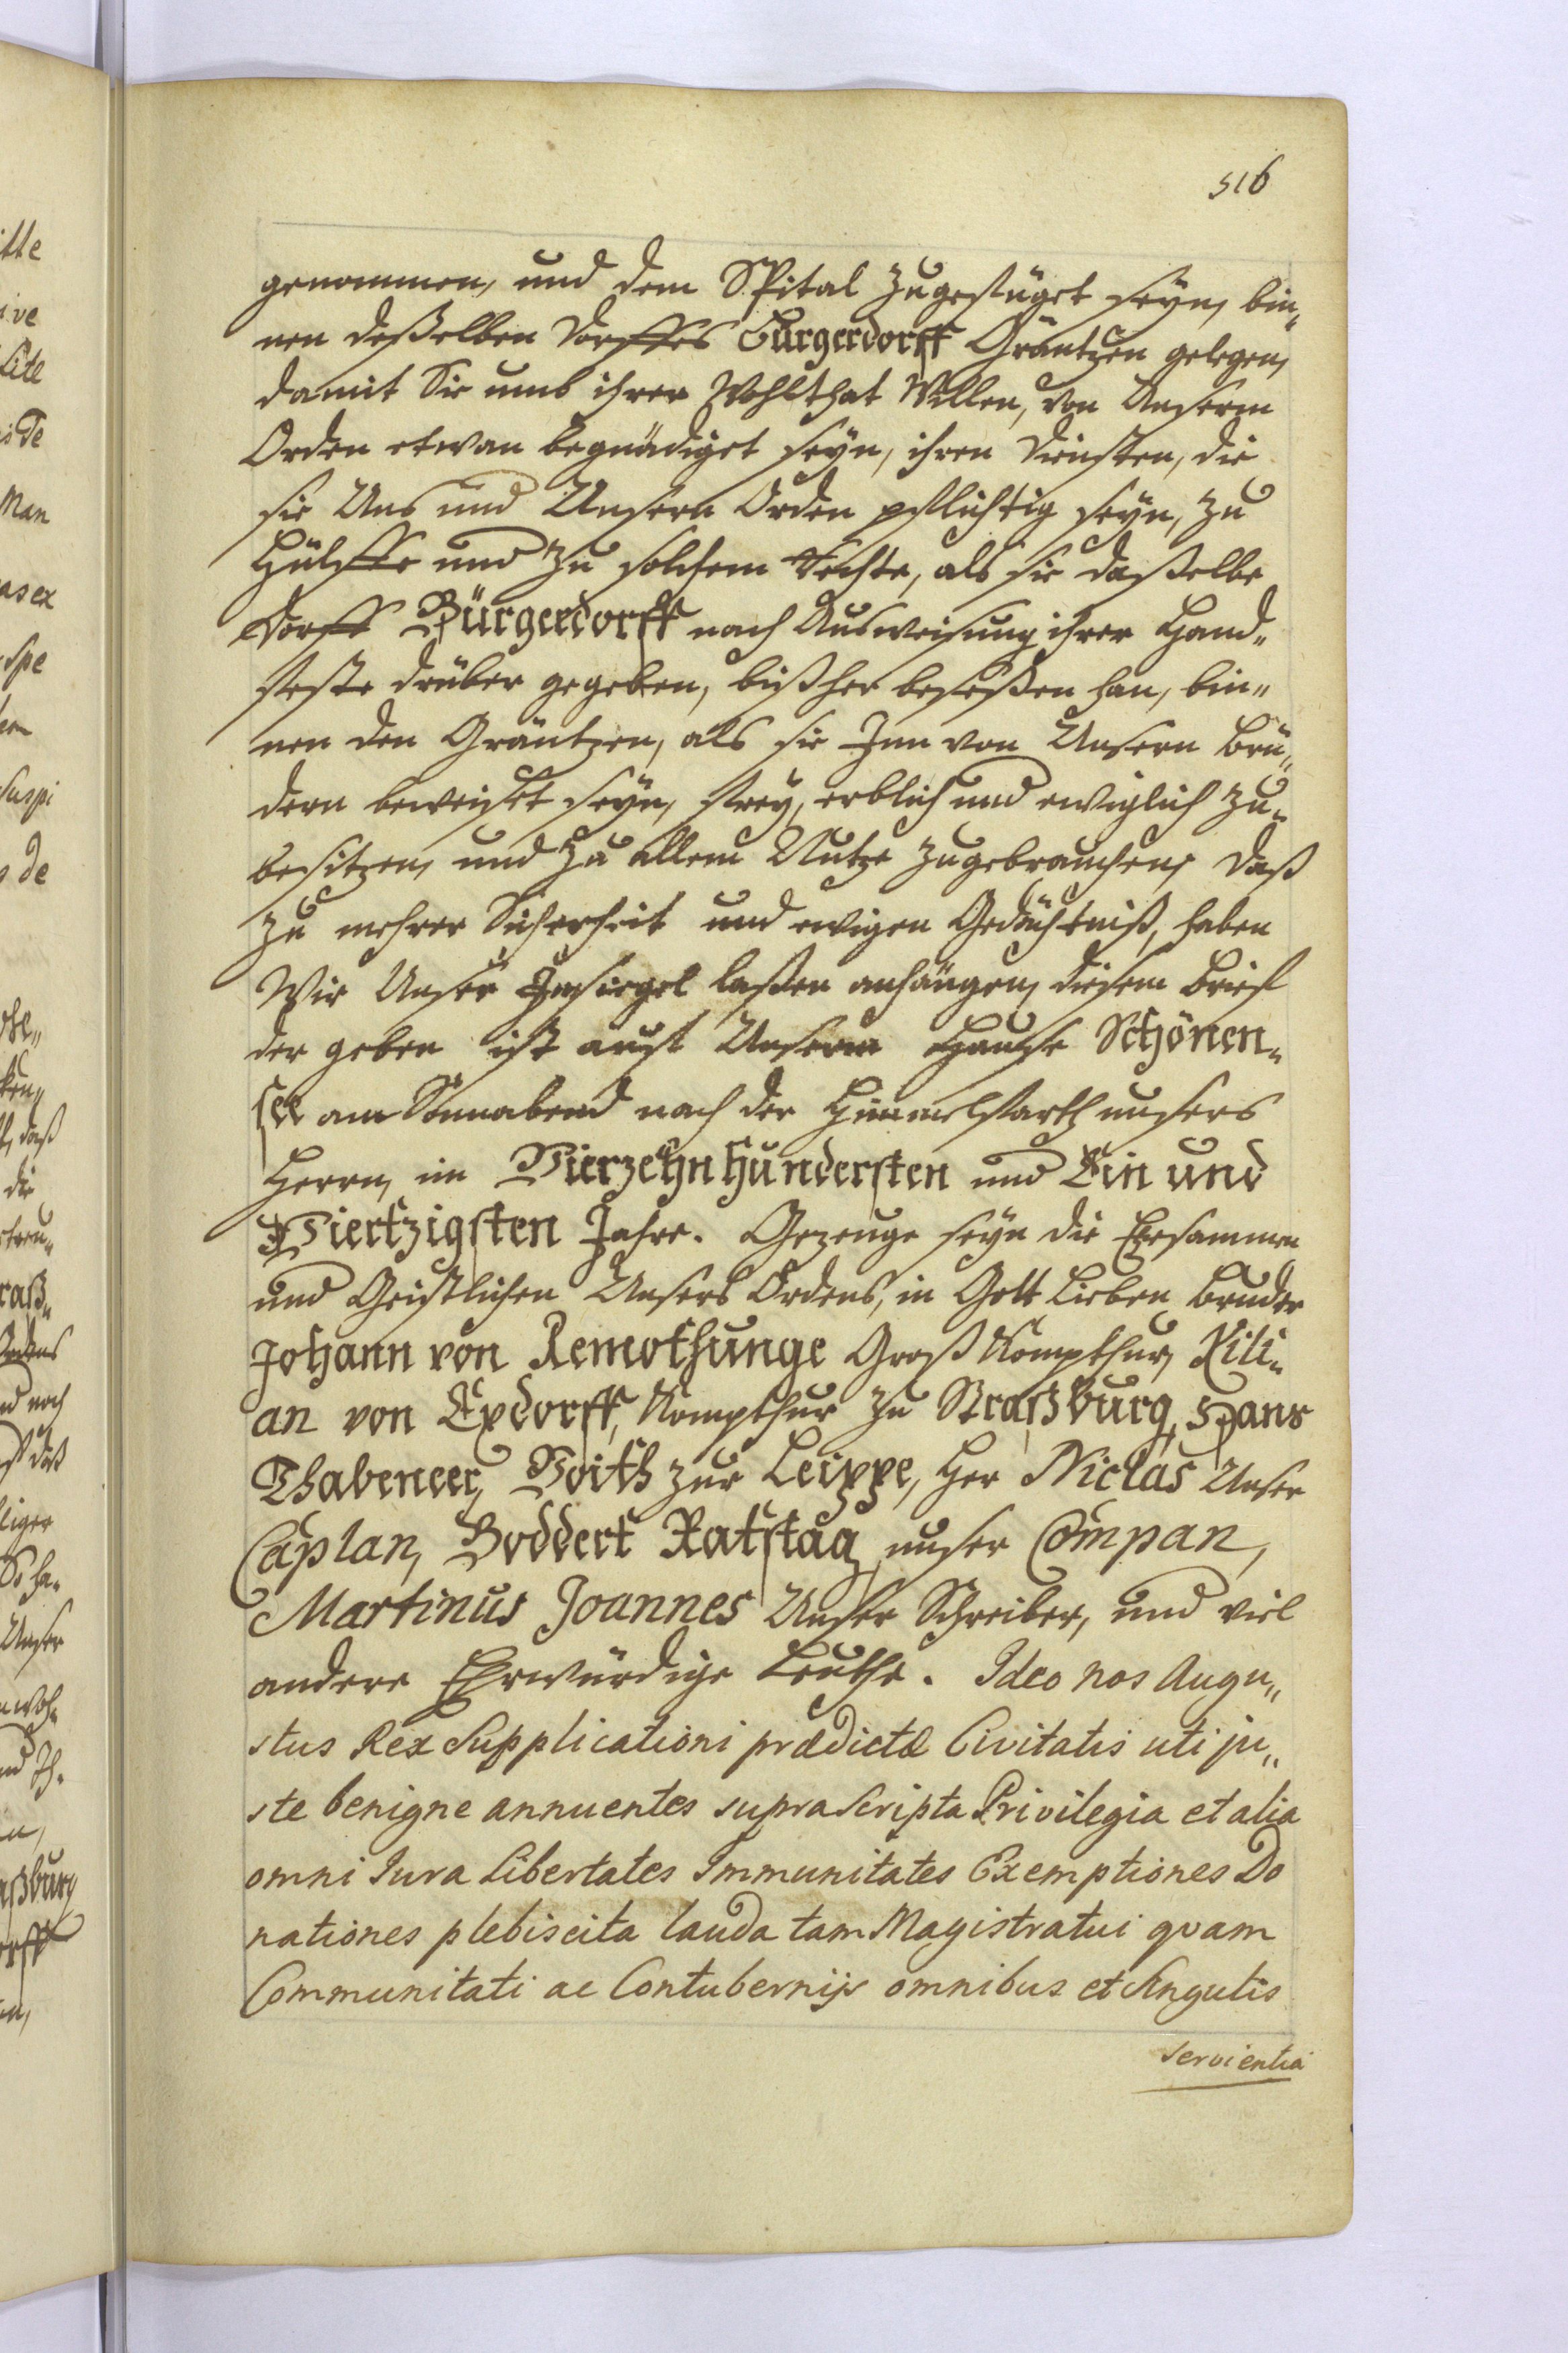 516
genommen, und dem Spital zugefüget seyn, bin„
nen deßelben Dorffes Bürgerdorff Gräntzen gelegen,
damit Sie umb ihrer Wohlthat Willen, von Unserm
Orden etwan begnädiget seyn, ihren Diensten, die
sie Uns und Unsern Orden pflichtig seyn, zu
Hülffe und zu solchem Rechte, als sie daßelbe
Dorff Bürgerdorff nach Ausweisung ihrer Hand„
feste drüber gegeben, bißher beseßen han, bin„
nen den Gräntzen, als sie Inn von Unsern Brü„
dern beweiset seyn, frey, erblich und ewiglich zu„
besitzen, und zu allem Nutze zugebrauchen, Daß
zu mehrer Sicherheit und ewigen Gedächtniß, haben
Wir Unser Insiegel laßen anhängen, diesem Brief
der geben ist auf Unserm Hause Schönen„
see am Sonnabend nach der Himmelfarth unsers
Herrn, im Vierzehnhundersten und Ein und
Viertzigsten Jahre. Gezeuge seyn die Ehrsammen
und Geistlichen Unsers Ordens, in Gott Lieben Bruder
Johann von Remothunge Groß Kompthur, Kili„
an von Exdorff, Kompthur zu Straßburg, Hans
Thabeneer, Voith zur Leippe, Her Niclas Unser
Caplan, Boddert Ratstag unser Compan,
Martinus Joannes Unser Schreiber, und viel
andere Ehrwürdige Leuthe. Ideo nos Augu„
stus Rex Supplicationi prædictæ Civitatis uti ju„
ste benigne annuentes supra Scripta Privilegia et alia
omni Iura Libertates Immunitates Exemptiones Do
nationes plebiscita lauda tam Magistratui qvam
Communitati ac Contubernijs omnibus et Singulis
servientia